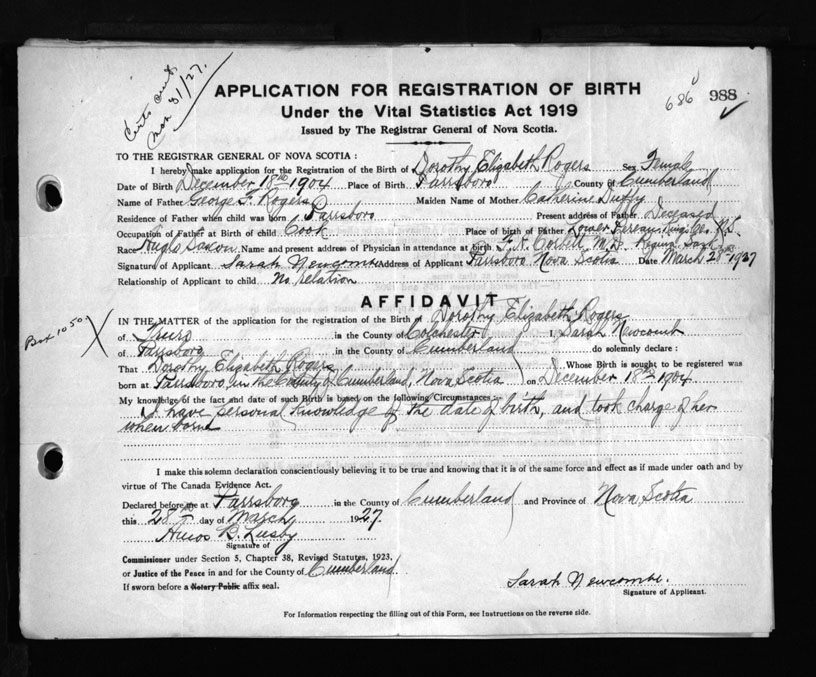 Mar 31/27.
APPLICATION FOR REGISTRATION OF BIRTH
686 988
Under the Vital Statistics Act 1919
Issued by The Registrar General of Nova Scotia.
TO THE REGISTRAR GENERAL OF NOVA SCOTIA :
I hereby make application for the Registration of the Birth of Dorothy Elizabeth Rogers Sex Female
Date of Birth December 18th 1904 Place of Birth Parrsboro County of Cumberland
Name of Father George F. Rogers Maiden Name of Mother Catherine Duffy
Residence of Father when child was born Parrsboro Present address of Father Deceased
Occupation of Father at Birth of child Cook Place of birth of Father Lower
Race Anglo Saxon Name and present address of Physician in attendance at birth Corbett, M.D. Regina, Sask
Signature of Applicant Sarah Newcombe Address of Applicant Parrsboro Nova Scotia Date March 28th 1927
Relationship of Applicant to child No relation
AFFIDAVIT
Box 1050.
IN THE MATTER of the application for the registration of the Birth of Dorothy Elizabeth Rogers
of Truro in the County of Colchester I, Sarah Newcomb
of Parrsboro in the County of Cumberland do solemnly declare :
That Dorothy Elizabeth Rogers Whose Birth is sought to be registered was
born at Parrsboro, in the County of Cumberland, Nova Scotia on December 18th 1904
My knowledge of the fact and date of such Birth is based on the following Circumstances
I have personal knowledge of the date of birth, and took charge of her
when borne
I make this solemn declaration conscientiously believing it to be true and knowing that it is of the same force and effect as if made under oath and by
virtue of The Canada Evidence Act.
Declared before me at Parrsboro in the County of Cumberland and Province of Nova Scotia
this 28th day of March 1927
Amos B. Lusby
Signature of
Commissioner under Section 5, Chapter 38, Revised Statutes, 1923.
or Justice of the Peace in and for the County of Cumberland.
If sworn before a Notary Public affix seal.
Sarah Newcombe.
Signature of Applicant.
For Information respecting the filling out of this Form, see Instructions on the reverse side.